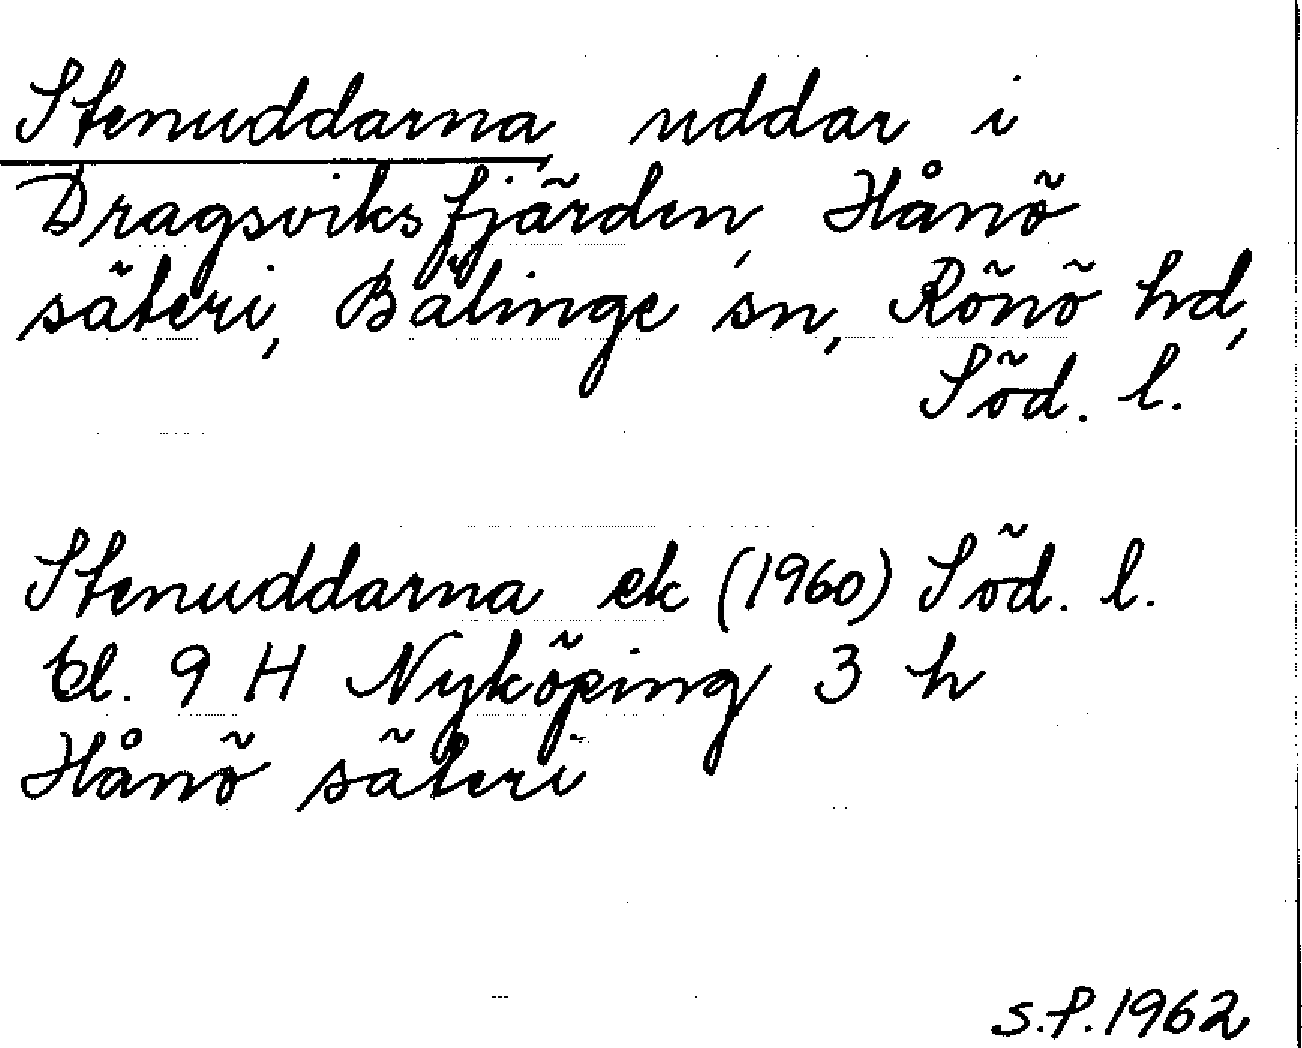 Stenuddarna, uddar i
Dragsviksfjärden, Hånö
säteri, Bälinge sn, Rönö hd,
Söd. l.
Stenuddarna ek (1960) Söd. l.
bl. 9 H Nyköping 3 h
Hånö säteri
S.P. 1962